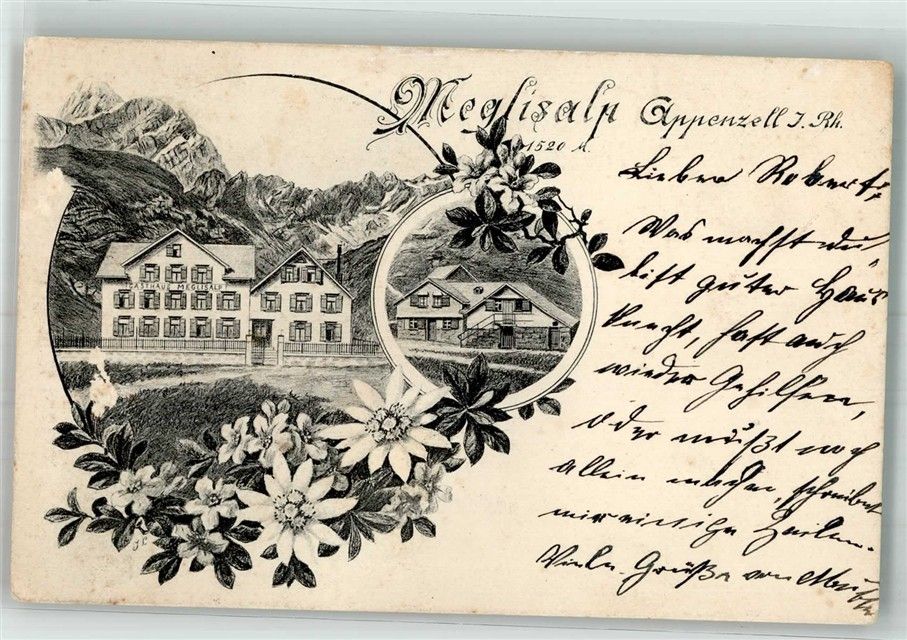 Meglisalp Appenzell I. Rh.
1520 M.
GASTHAUS MEGLISALP
Lieber Robert,
Was machst du,
bist guter Haus
knecht, hast auch
wieder Gehilfen,
oder mußt noch
allein machen, schreibe
mir einige Zeilen.
Viele Grüße von Mutter